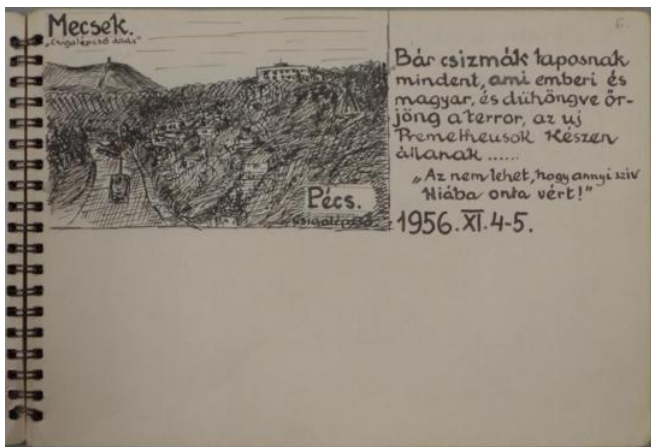 Mecsek.
„Csigalépcső állás"
6.
Bár csizmák taposnak
mindent, ami emberi és
magyar, és dühöngve őr-
jöng a terror, az uj
Prometheusok Készen
állanak ......
„Az nem lehet, hogy annyi sziv
Hiába onta vért!"
1956. XI. 4-5.
Pécs.
Csigalépcső